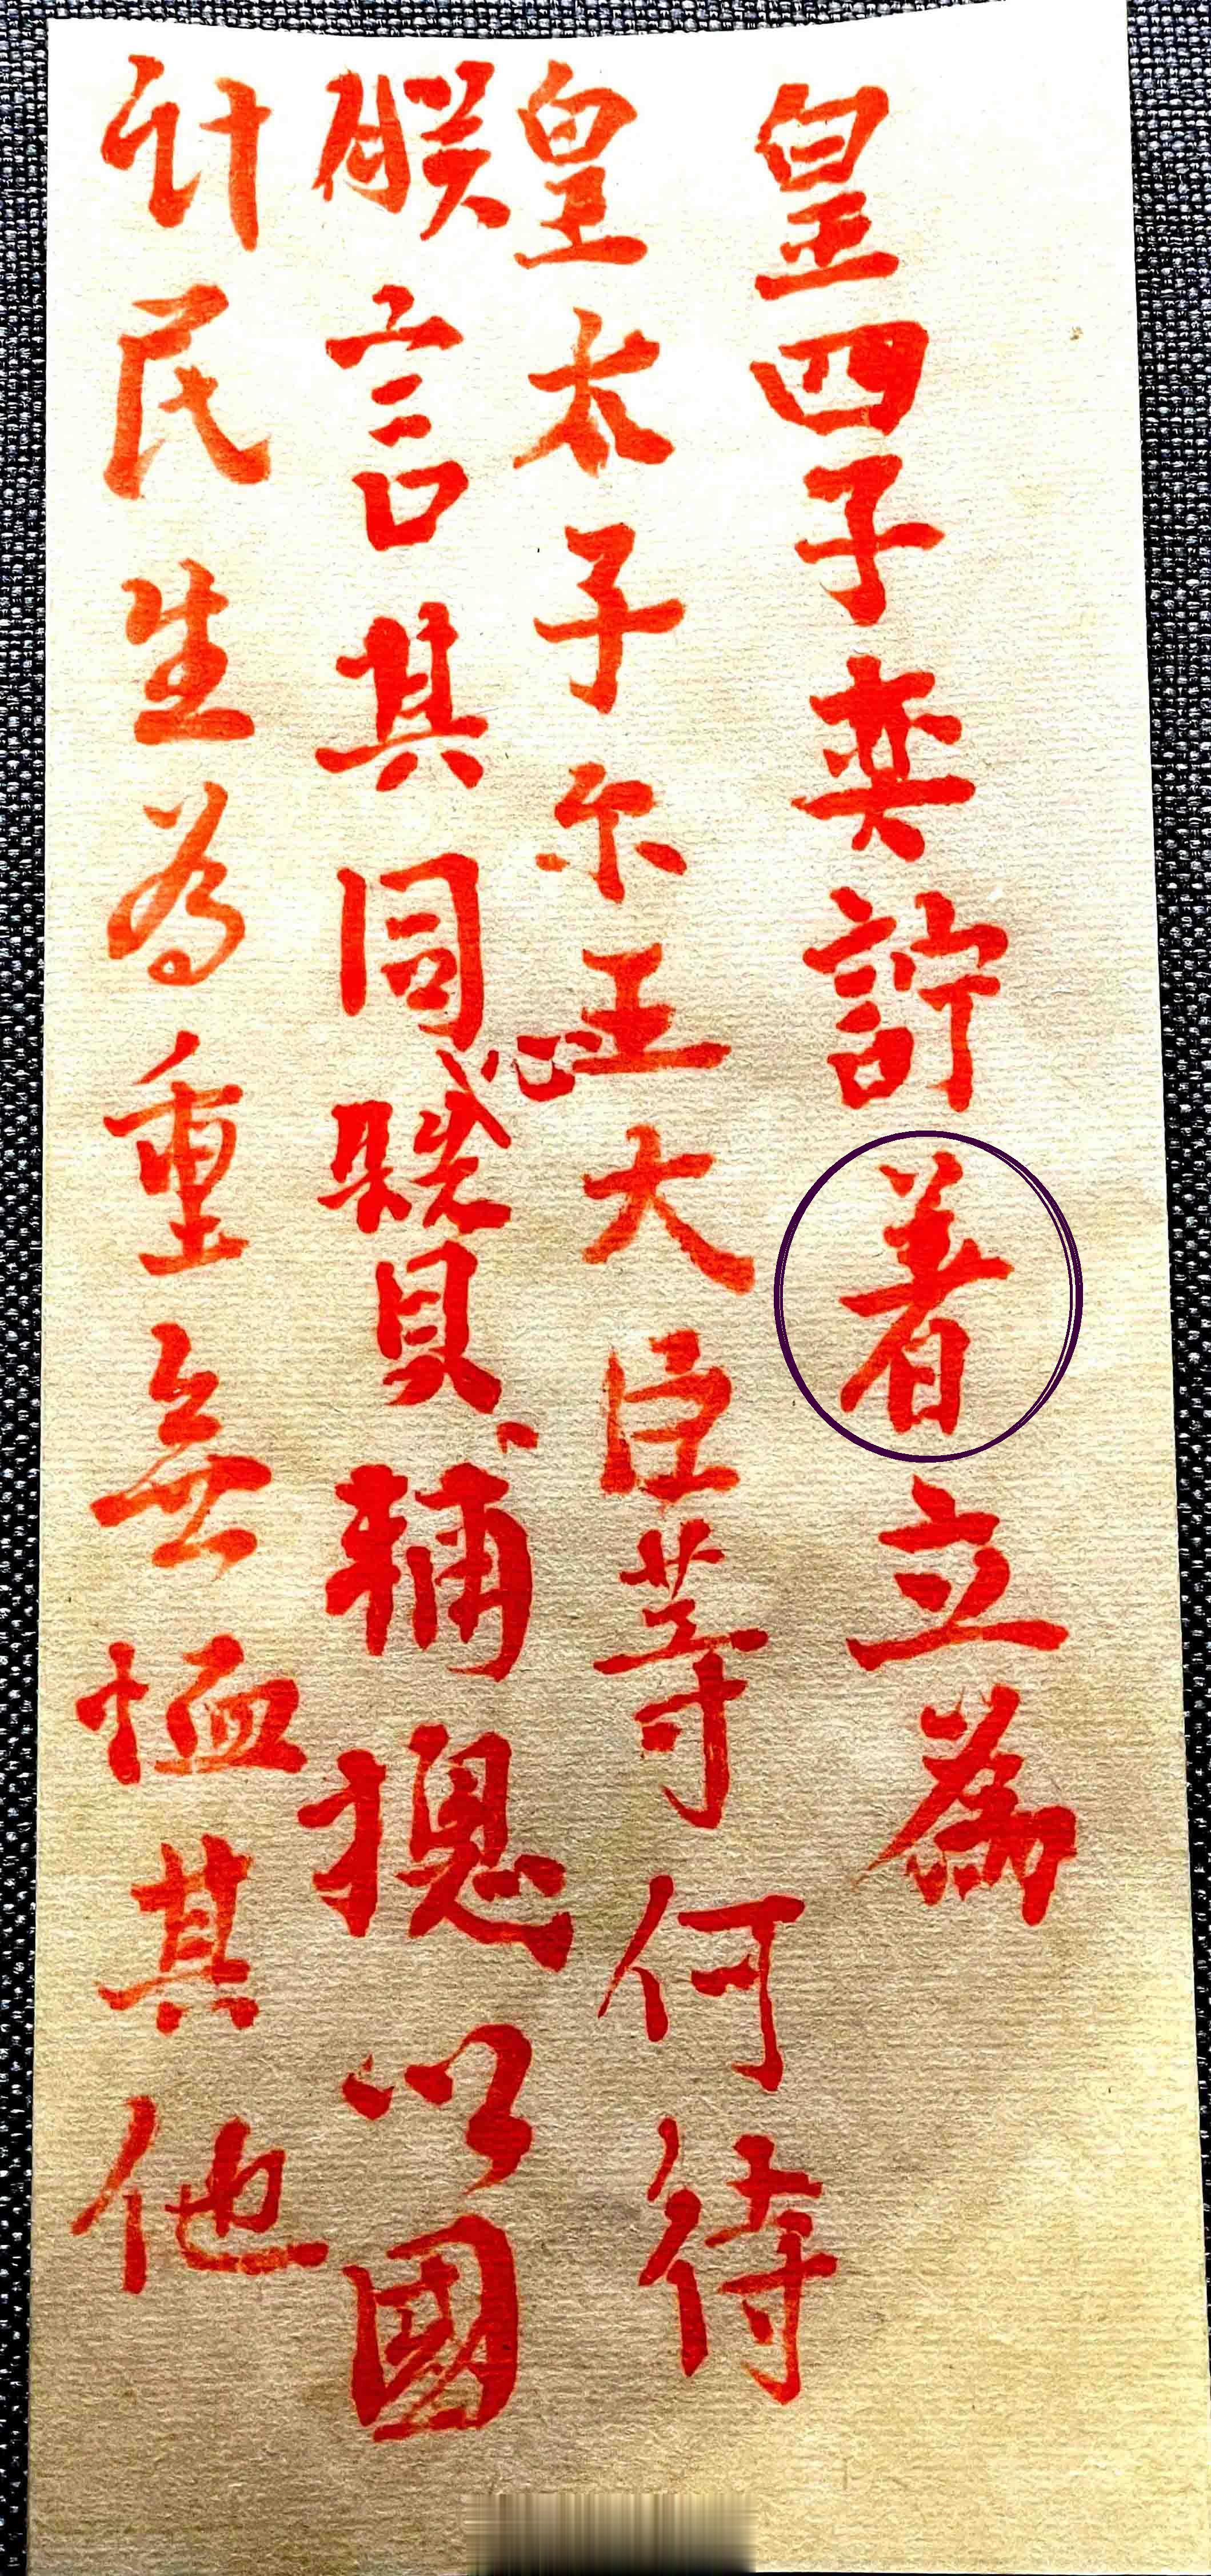 皇四子奕詝著立為
皇太子尔王大臣等何待
朕言其同心贊輔摠以國
計民生為重無恤其他